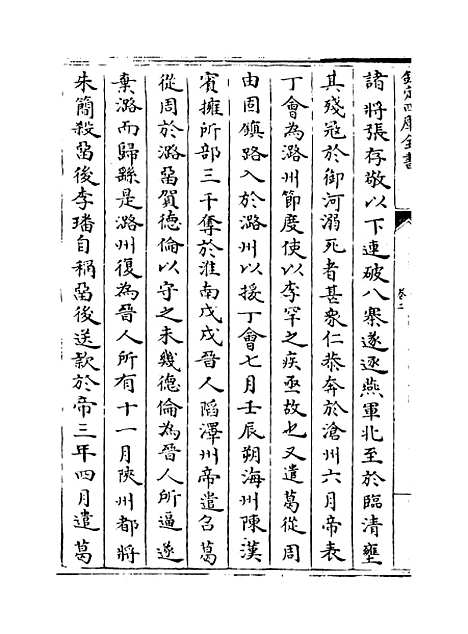 欽定四庫全書
卷二
諸將張存敬以下連破八寨遂逐燕軍北至於臨清壅
其殘冦於御河溺死者甚衆仁恭奔於滄州六月帝表
丁會為潞州節度使以李罕之疾亟故也又遣葛從周
由固鎮路入於潞州以援丁會七月壬辰朔海州陳漢
賓擁所部三千奪於淮南戊戌晉人䧟澤州帝遣召葛
從周於潞留賀德倫以守之未幾德倫為晉人所逼遂
棄潞而歸繇是潞州復為晉人所有十一月陝州都將
朱簡殺留後李璠自稱留後送款於帝三年四月遣葛